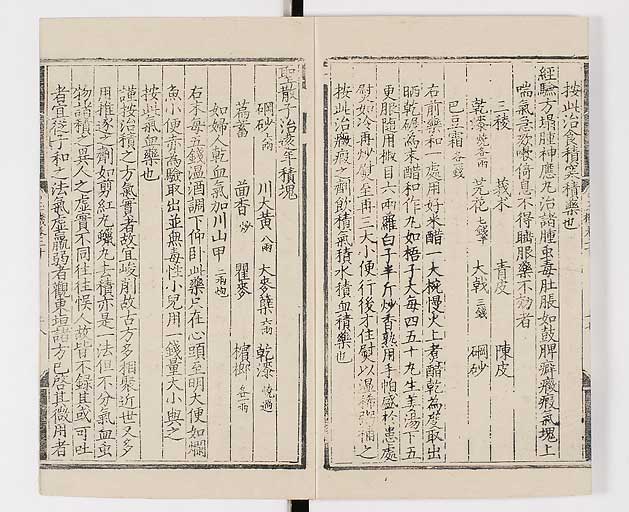 按此治食積寒積藥也
經驗方塌腫神應丸治諸腫䖝毒肚脹如鼓脾癖癥瘕氣塊上
喘氣急欬嗽倚息不得睡眠藥不効者
三稜 莪朮 青皮 陳皮
乾漆 芫花 大戟三錢 硇砂
巴豆霜各錢
右前藥和一處用好米醋一大椀慢火上煮醋乾為度取出
晒乾碾為末醋和作丸如梧子大每四五十丸生姜湯下五
更服隨用椒目六兩蘿白子半斤炒香熟用手帕盛於患處
熨如冷再炒熨至再三大小便行後才住熨以温補之
按此治癥瘕之劑飲積氣積水積血積藥也
聖散子治遠年積塊
硇砂六兩 川大黃八兩 大麥蘖六兩 乾漆燒過
萹蓄 茴香炒 瞿麥 檳榔各一兩
如婦人乾血氣加川山甲二兩炮
右末每五錢温酒調下仰臥此藥只在心頭至明大便如爛
魚小便赤為驗取出並無毒性小兒用一錢量大小與之
按此氣血藥也
謹按治積之方氣實者故宜峻削故古方多相襲近世又多
用推逐之劑如剪紅丸蠟丸去積亦是一法但不分氣血虫
物諸積之異人之虛實不同往往悞人故皆不錄其或可吐
者宜從子和之法氣虛羸弱者觀東垣諸方已啓其微用者